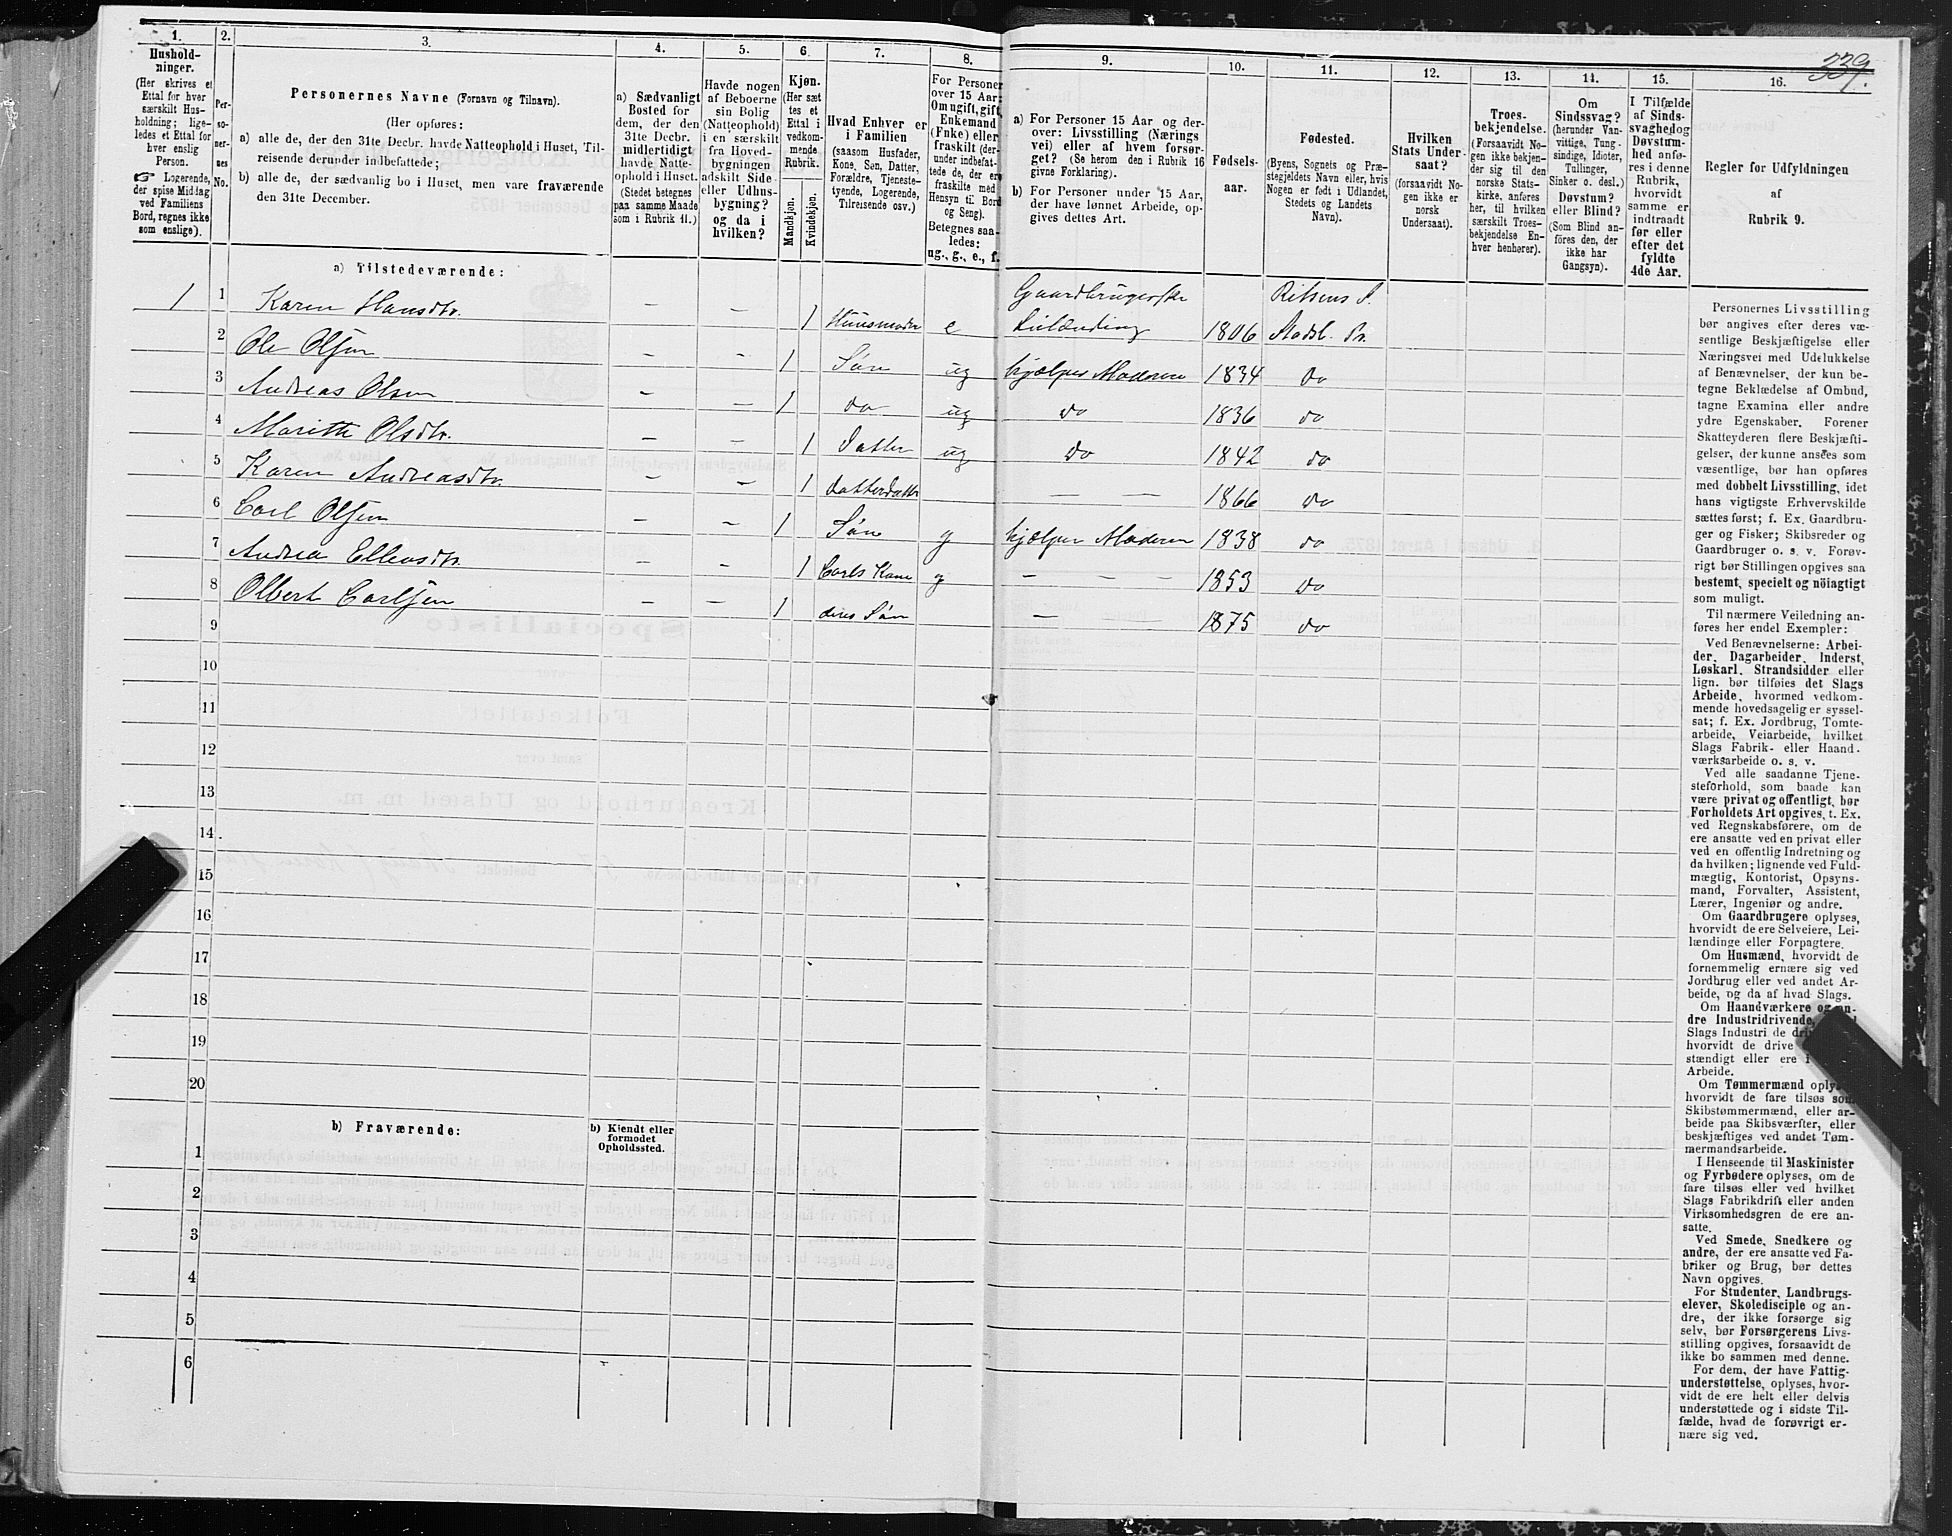 339.
1.
Hushold-
ninger.
(Her skrives et
Ettal for hver
særskilt Hus-
holdning; lige-
ledes et Ettal for
hver enslig
Person.
Logerende,
der spise Middag
ved Familiens
Bord, regnes ikke
som enslige).
2.
Per-
so-
ner-
nes
No.
3.
Personernes Navne (Fornavn og Tilnavn).
(Her opføres:
a) alle de, der den 31te Decbr. havde Natteophold i Huset, Til-
reisende derunder indbefattede;
b) alle de, der sædvanlig bo i Huset, men vare fraværende
den 31te December.
4.
a) Sædvanligt
Bosted for
dem, der den
31te Decbr.
midlertidigt
havde Natte-
ophold i Huset.
(Stedet betegnes
paa samme Maade
som i Rubrik 11.)
5.
Havde nogen
af Beboerne
sin Bolig
(Natteophold)
i en særskilt
fra Hoved-
bygningen
adskilt Side-
eller Udhus-
bygning?
og da i
hvilken?
6.
Kjøn.
(Her sæt
tes et
Ettal i
vedkom-
mende
Rubrik.
Mandkjøn.
Kvindekjøn.
7.
Hvad Enhver er
i Familien
(saasom Husfader,
Kone, Søn, Datter,
Forældre, Tjeneste-
tyende, Logerende,
Tilreisende osv.)
8.
For Personer
over 15 Aar:
Om ugift, gift,
Enkemand
(Enke) eller
fraskilt (der-
under indbefat-
tede de, der ere
fraskilte med
Hensyn til Bord
og Seng).
Betegnes saa-
ledes:
ug., g., e., f.
9.
a) For Personer 15 Aar og der-
over: Livsstilling (Nærings
vei) eller af hvem forsør-
get? (Se herom den i Rubrik 16
givne Forklaring).
b) For Personer under 15 Aar,
der have lønnet Arbeide, op-
gives dettes Art.
10.
Fødsels-
aar.
11.
Fødested.
(Byens, Sognets og Præ-
stegjeldets Navn eller, hvis
Nogen er født i Udlandet,
Stedets og Landets
Navn).
12.
Hvilken
Stats Under-
saat?
(forsaavidt No-
gen ikke er
norsk
Undersaat).
13.
Troes-
bekjendelse.
(Forsaavidt No-
gen ikke bekjen-
der sig til den
norske Stats-
kirke, anføres
her, til hvilken
særskilt Troes-
bekjendelse En-
hver henhører).
14.
Om
Sindssvag?
(herunder Van-
vittige, Tung-
sindige, Idioter,
Tullinger,
Sinker o. desl.)
Døvstum?
eller Blind?
(Som Blind an-
føres den, der
ikke har
Gangsyn).
15.
I Tilfælde
af Sinds-
svaghed og
Døvstum-
hed anfø-
res i denne
Rubrik,
hvorvidt
samme er
indtraadt
før eller
efter det
fyldte
4de Aar.
16.
Regler for Udfyldningen
af
Rubrik 9.
a) Tilstedeværende:
1 1 Karen Hansdtr. — — 1 Huusmoder e Gaardbrugerske Leilænding 1806 Ritsens S. Stadsb. Pr.
2 Ole Olsen — — 1 Søn ug hjælper Moderen 1834 do
3 Andreas Olsen — — 1 do ug do 1836 do
4 Marith Olsdtr. — — 1 Datter ug do 1842 do
5 Karen Andreasdtr. — — 1 Datterdattr — — 1866 do
6 Carl Olsen — — 1 Søn g hjælper Moderen 1838 do
7 Andrea Ellensdtr. — — 1 Carls Kone g — — — 1853 do
8 Olbert Carlsen — — 1 deres Søn — 1875 do
9
10
11
12
13
14
15
16
17
18
19
20
b) Fraværende:
b) Kjendt eller
formodet
Opholdssted.
1
2
3
4
5
6
Personernes Livsstilling
bør angives efter deres væ-
sentlige Beskjæftigelse eller
Næringsvei med Udelukkelse
af Benævnelser, der kun be-
tegne Beklædelse af Ombud,
tagne Examina eller andre
ydre Egenskaber. Forener
Skatteyderen flere Beskjæfti-
gelser, der kunne ansees som
væsentlige, bør han opføres
med dobbelt Livsstilling, idet
hans vigtigste Erhvervskilde
sættes først; f. Ex. Gaardbru-
ger og Fisker; Skibsreder og
Gaardbruger o. s. v. Forøv-
rigt bør Stillingen opgives saa
bestemt, specielt og nöiagtigt
som muligt.
Til nærmere Veiledning an-
føres her endel Exempler:
Ved Benævnelserne: Arbei-
der, Dagarbeider, Inderst,
Løskarl, Strandsidder eller
lign. bør tilføies det Slags
Arbeide, hvormed vedkom-
mende hovedsagelig er syssel-
sat; f. Ex. Jordbrug, Tomte-
arbeide, Veiarbeide, hvilket
Slags Fabrik- eller Haand-
værksarbeide o. s. v.
Ved alle saadanne Tjene-
steforhold, som baade kan
være privat og offentligt, bør
Forholdets Art opgives, t. Ex.
ved Regnskabsførere, om de
ere ansatte ved en privat eller
ved en offentlig Indretning og
da hvilken; lignende ved Fuld-
mægtig, Kontorist, Opsyns-
mand, Forvalter, Assistent,
Lærer, Ingeniør og andre.
Om Gaardbrugere oplyses,
hvorvidt de ere Selveiere, Lei-
lændinge eller Forpagtere.
Om Husmænd, hvorvidt de
fornemmelig ernære sig ved
Jordbrug eller ved andet Ar-
beide, og da af hvad Slags.
Om Haandværkere og an-
dre Industridrivende,
Slags Industri de
hvorvidt de drive
stændigt eller ere i
Arbeide.
Om Tømmermænd oplyses
hvorvidt de fare tilsøs som
Skibstømmermænd, eller ar-
beide paa Skibsværfter, eller
beskjæftiges ved andet Tøm-
mermandsarbeide.
I Henseende til Maskinister
og Fyrbødere oplyses, om de
fare tilsøs eller ved hvilket
Slags Fabrikdrift eller anden
Virksomhedsgren de ere an-
satte.
Ved Smede, Snedkere og
andre, der ere ansatte ved Fa-
briker og Brug, bør dettes
Navn opgives.
For Studenter, Landbrugs-
elever, Skoledisciple og an-
dre, der ikke forsørge sig
selv, bør Forsørgerens Livs-
stilling opgives, forsaavidt de
ikke bo sammen med denne.
For dem, der have Fattig-
understøttelse, oplyses, hvor-
vidt de ere helt eller delvis
understøttede og i sidste Til-
fælde, hvad de forøvrigt er-
nære sig ved.